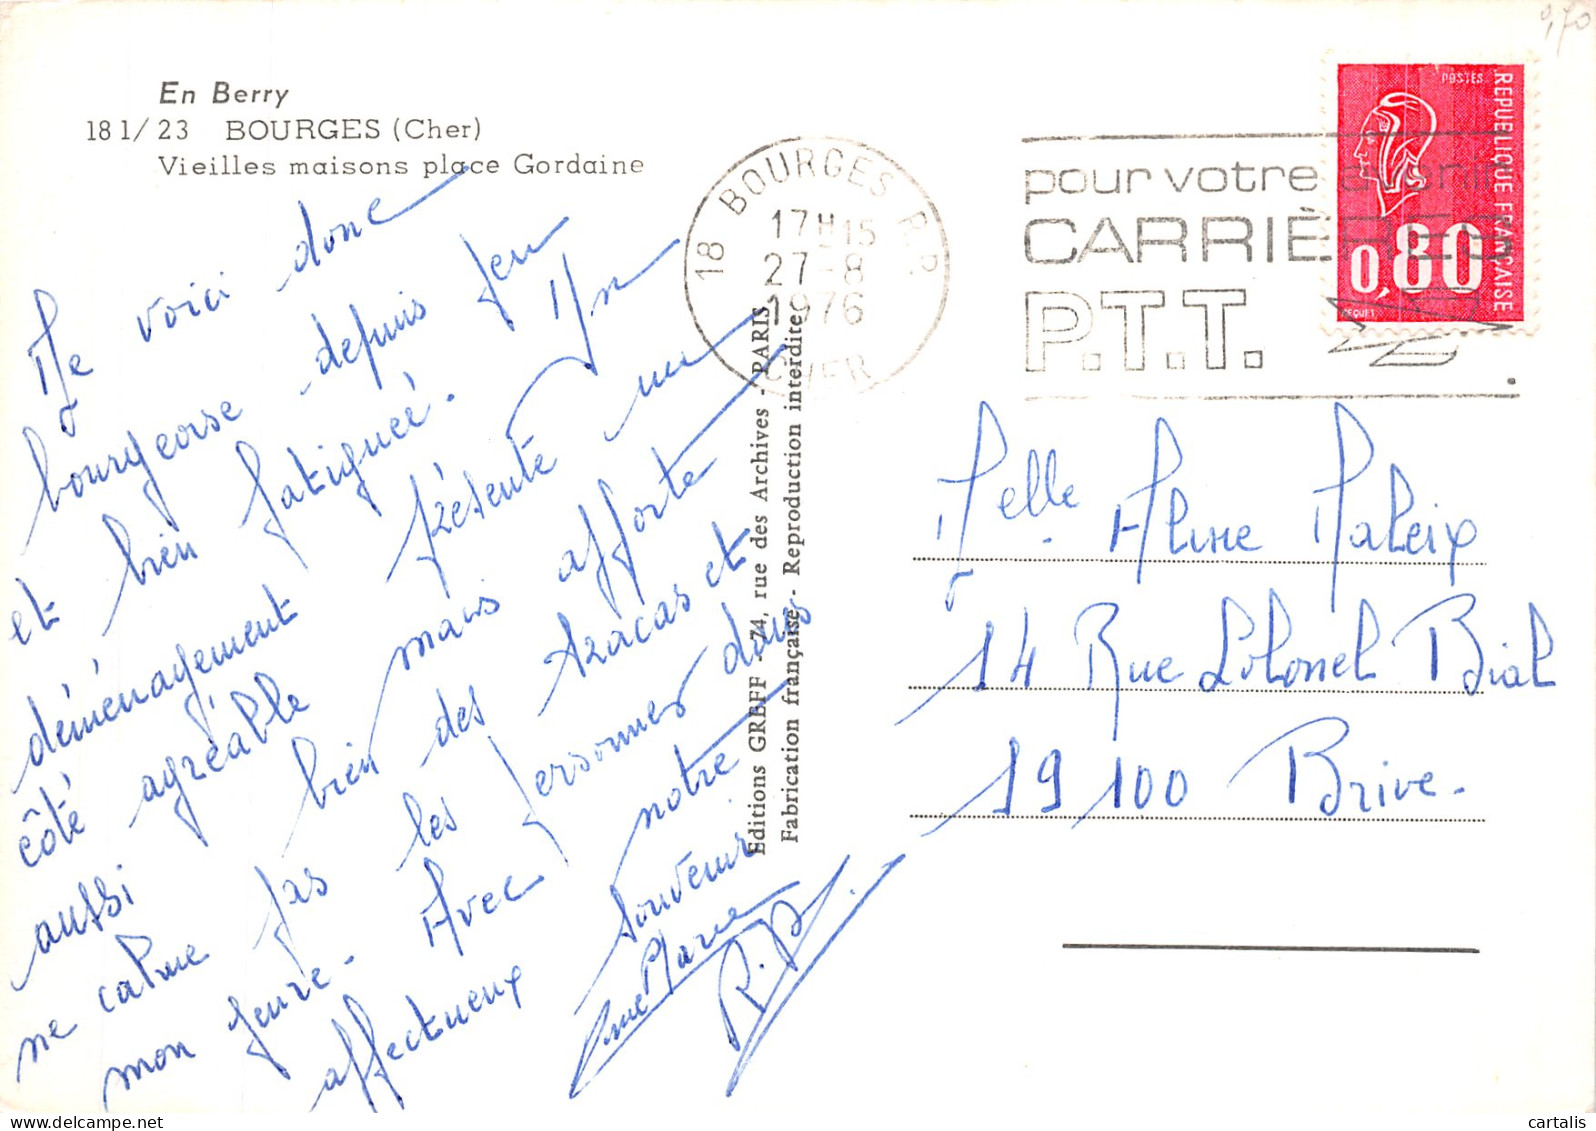 En Berry
18 1/ 23 BOURGES (Cher)
Vieilles maisons place Gordaine
Me voici donc
bourgeoise depuis peu
et bien fatiguée. Un
déménagement présente un
côté agréable mais apporte
aussi bien des tracas et
ne calme pas les personnes dans
mon genre. Avec notre
affectueux souvenir
Anne Marie
18 BOURGES R.P.
17H15
27-8
1976
CHER
pour votre avenir
CARRIÈRES
P.T.T.
POSTES
REPUBLIQUE FRANÇAISE
0,80
BEQUET
0,70
Melle Aline Maleix
14 Rue Colonel Bial
19100 Brive.
Editions GREFF - 74, rue des Archives - PARIS
Fabrication française - Reproduction interdite
cartalis
delcampe.net